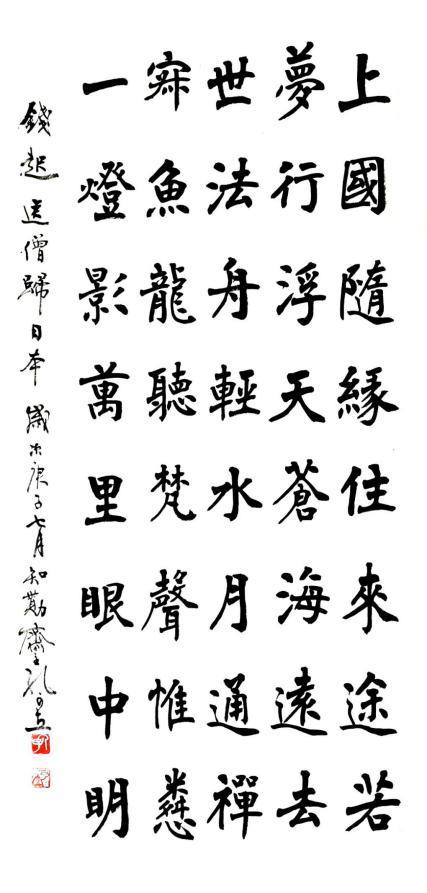 上國隨緣住來途若
夢行浮天蒼海遠去
世法舟輕水月通禪
寂魚龍聽梵聲惟憐
一燈影萬里眼中明
錢起送僧歸日本 歲次庚子七月知勤齋孔